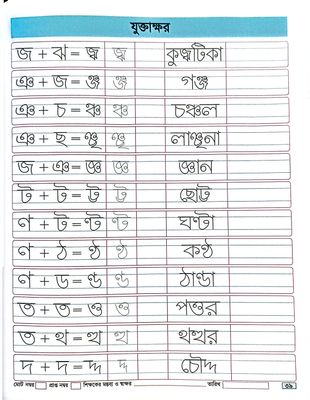 যুক্তাক্ষর
জ + ঝ = জ্ঝ জ্ঝ কুজ্ঝটিকা
ঞ + জ = ঞ্জ ঞ্জ গঞ্জ
ঞ + চ = ঞ্চ ঞ্চ চঞ্চল
ঞ + ছ = ঞ্ছ ঞ্ছ লাঞ্ছনা
জ + ঞ = জ্ঞ জ্ঞ জ্ঞান
ট + ট = ট্ট ট্ট ছোট্ট
ণ + ট = ণ্ট ণ্ট ঘণ্টা
ণ + ঠ = ণ্ঠ ণ্ঠ কণ্ঠ
ণ + ড = ণ্ড ণ্ড ঠাণ্ডা
ত + ত = ত্ত ত্ত পত্তর
ত + থ = ত্থ ত্থ থত্থর
দ + দ = দ্দ দ্দ চৌদ্দ
মোট নম্বর প্রাপ্ত নম্বর শিক্ষকের মন্তব্য ও স্বাক্ষর তারিখ ৩৯